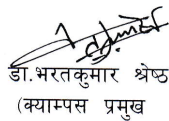 डा.भरतकुमार श्रेष्ठ
(क्याम्पस प्रमुख